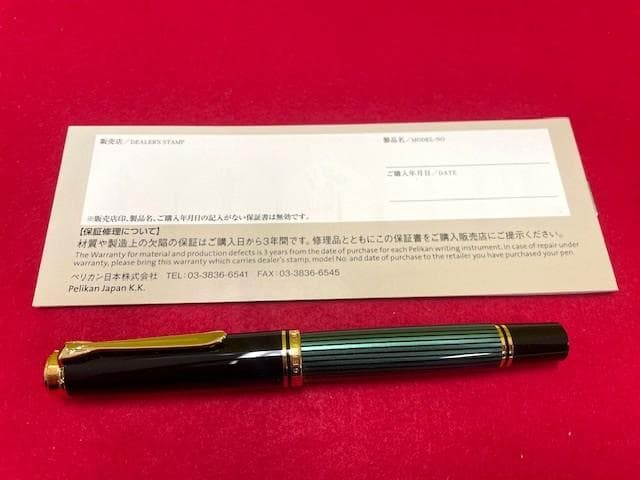 販売店/DEALER'S STAMP
製品名/MODEL/NO
ご購入年月日/DATE
※販売店印、製品名、ご購入年月日の記入がない保証書は無効です。
【保証修理について】
材質や製造上の欠陥の保証はご購入日から3年間です。修理品とともにこの保証書をご購入販売店にご提示ください。
The Warranty for material and production defects is 3 years from the date of purchase for each Pelikan writing instrument. In case of repair under
warranty, please bring this warranty which carries dealer's stamp, model No. and date of purchase to the retailer you have purchased your pen.
ペリカン日本株式会社 TEL：03-3836-6541 FAX：03-3836-6545
Pelikan Japan K.K.